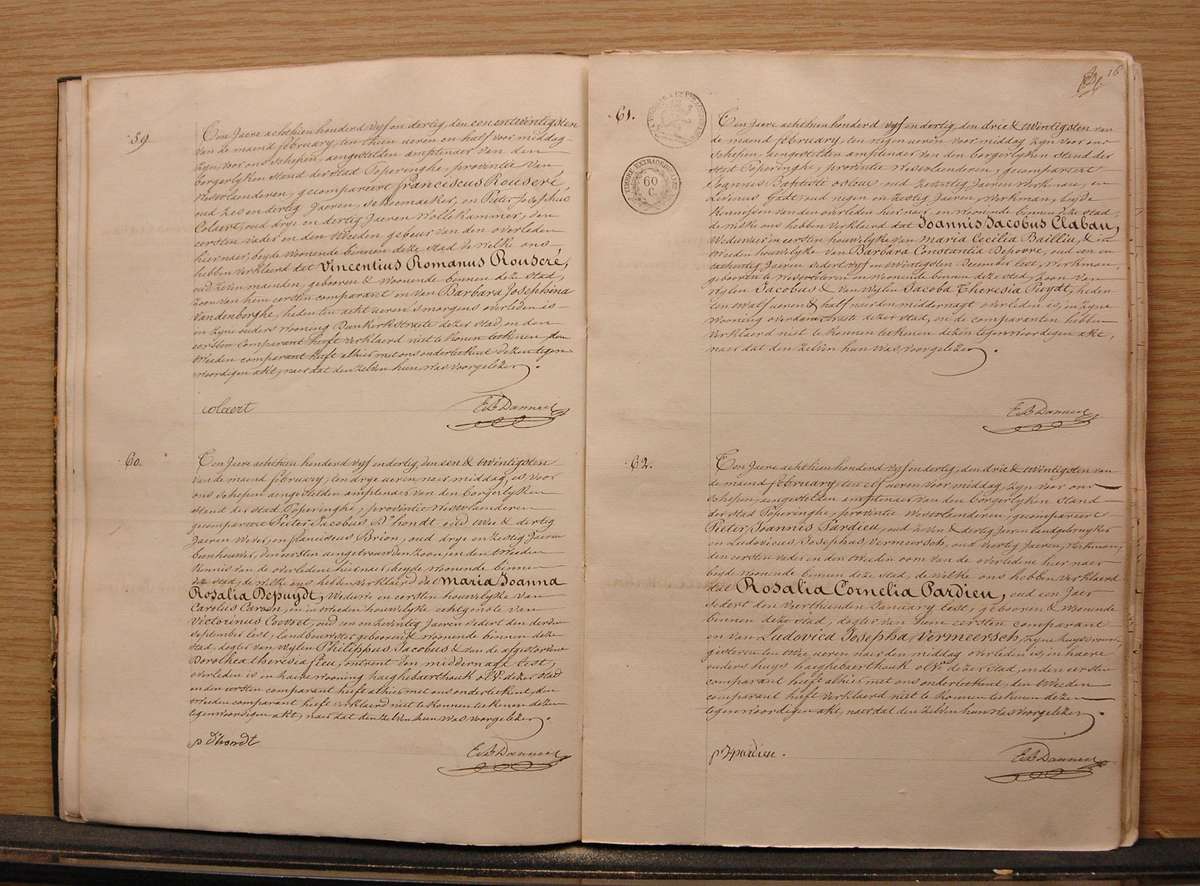 59.
Ten Jaere achthien honderd vyf en dertig, den een en twintigsten
van de maend february, ten thien ueren en half voor middag
zyn voor ons schepen, aengestelden amptenaer van den
borgerlyken stand der stad Poperinghe, provintie van
Westvlaenderen, gecompareert franciscus Rouseré,
oud zes en dertig Jaeren, schoenmaeker, en Pieter Josephus
Colaert, oud drye en dertig Jaeren Wollekammer, den
eersten vader en den tweeden gebeur van den overleden
hier naer, beyde woonende binnen deze stad de welke ons
hebben verklaerd dat Vincentius Romanus Rouseré,
oud zeven maenden, geboren & woonende binnen deze stad,
zoon van hem eersten comparant en van Barbara Josephina
Vandenberghe, heden ten acht ueren s'morgens overleden is
in zyne ouders wooning Dunkerkstraete dezer stad en den
eersten comparant heeft verklaerd niet te konnen teekenen, den
tweeden comparant heeft alhier met ons onderteekent dezen tegen-
woordigen akt, naer dat den zelven hun was voorgelezen.
colaert
60.
Ten Jaere achthien honderd vyf en dertig, den een & twintigsten
van de maend february, ten drye ueren naer middag, is voor
ons schepen aengestelden amptenaer van den borgerlyken
stand der stad Poperinghe, provintie Westvlaenderen
gecompareert Pieter Jacobus D'hondt oud twee & dertig
Jaeren Wever, en franciscus Brion, oud drye en zestig Jaeren
den eersten aengetrouwden zoon, en den tweeden
kennis van de overledene hier naer, beyde woonende binnen
deze stad, de welke ons hebben verklaerd dat Maria Joanna
Rosalia Depuydt, Weduwe in eersten houwelyke van
Carolus Caroen, en in tweeden houwelyke echtgenote van
Victorinus Coevoet, oud een en zeventig Jaeren sedert den
september lest, landbouwster geboren & woonende binnen deze
stad, dogter van wylen Philippus Jacobus & van de afgestorvene
Dorothea theresia Leu, omtrent den middernagt lest,
overleden is in haere wooning haeghebaerthouk dezer stad
en den eersten comparant heeft alhier met ons onderteekent, den
tweeden comparant heeft verklaerd niet te konnen teekenen dezen
tegenwoordigen akt, naer dat den zelven hun was voorgelezen.
p d'hondt
16
61.
TIMBRE EXTRAORDINAIRE
60
C.
Ten Jaere achthien honderd vyf en dertig, den drie & twintigsten van
de maend february, ten negen ueren voor middag zyn voor ons
schepen, aengestelden amptenaer van den borgerlyken stand der
stad Poperinghe, provintie Westvlaenderen, gecompareert
Joannis Baptiste oud zestig Jaeren Werkman, en
Livinus oud negen en zestig Jaeren, Werkman, beyde
kennissen van den overleden hier naer, en woonende binnen deze stad,
de welke ons hebben verklaerd dat Joannis Jacobus Clabau,
Weduwaer in eersten houwelyke van Maria Cecilia Bailliu, & in
tweeden houwelyke van Barbara Constantia Depoorre, oud een en
tachentig Jaeren sedert vyf en twintigsten January lest, Werkman,
geboren te en woonende binnen deze stad, zoon van
wylen Jacobus & van wylen Jacoba Theresia Puydt, heden
ten twalf ueren & half naer den middernagt overleden is, in zyne
wooning dezer stad, en de comparanten hebben
verklaerd niet te konnen teekenen dezen tegenwoordigen akt,
naer dat den zelven hun was voorgelezen.
62.
Ten Jaere achthien honderd vyf en dertig, den drie & twintigsten van
de maend february ten elf ueren voor middag, zyn voor ons
schepen, aengestelden amptenaer van den borgerlyken stand
der stad Poperinghe, provintie Westvlaenderen, gecompareert
Pieter Joannis Pardieu, oud zeven & dertig Jaeren landgebruyker
en Ludovicus Josephus Vermeersch, oud veertig Jaeren, Werkman,
den eersten vader en den tweeden oom van de overleden hier naer
beyde woonende binnen deze stad, de welke ons hebben verklaerd
dat Rosalia Cornelia Pardieu, oud een Jaer
sedert den veerthienden January lest, geboren & woonende
binnen deze stad, dogter van hem eersten comparant
en van Ludovica Josepha Vermeersch, zyne huysvrouw,
gisteren ten twee ueren naer den middag overleden is, in haere
ouders huys haeghebaerthouk dezer stad, en den eersten
comparant heeft alhier met ons onderteekent, den tweeden
comparant heeft verklaerd niet te konnen teekenen dezen
tegenwoordigen akt, naer dat den zelven hun was voorgelezen.
p J pardieu.